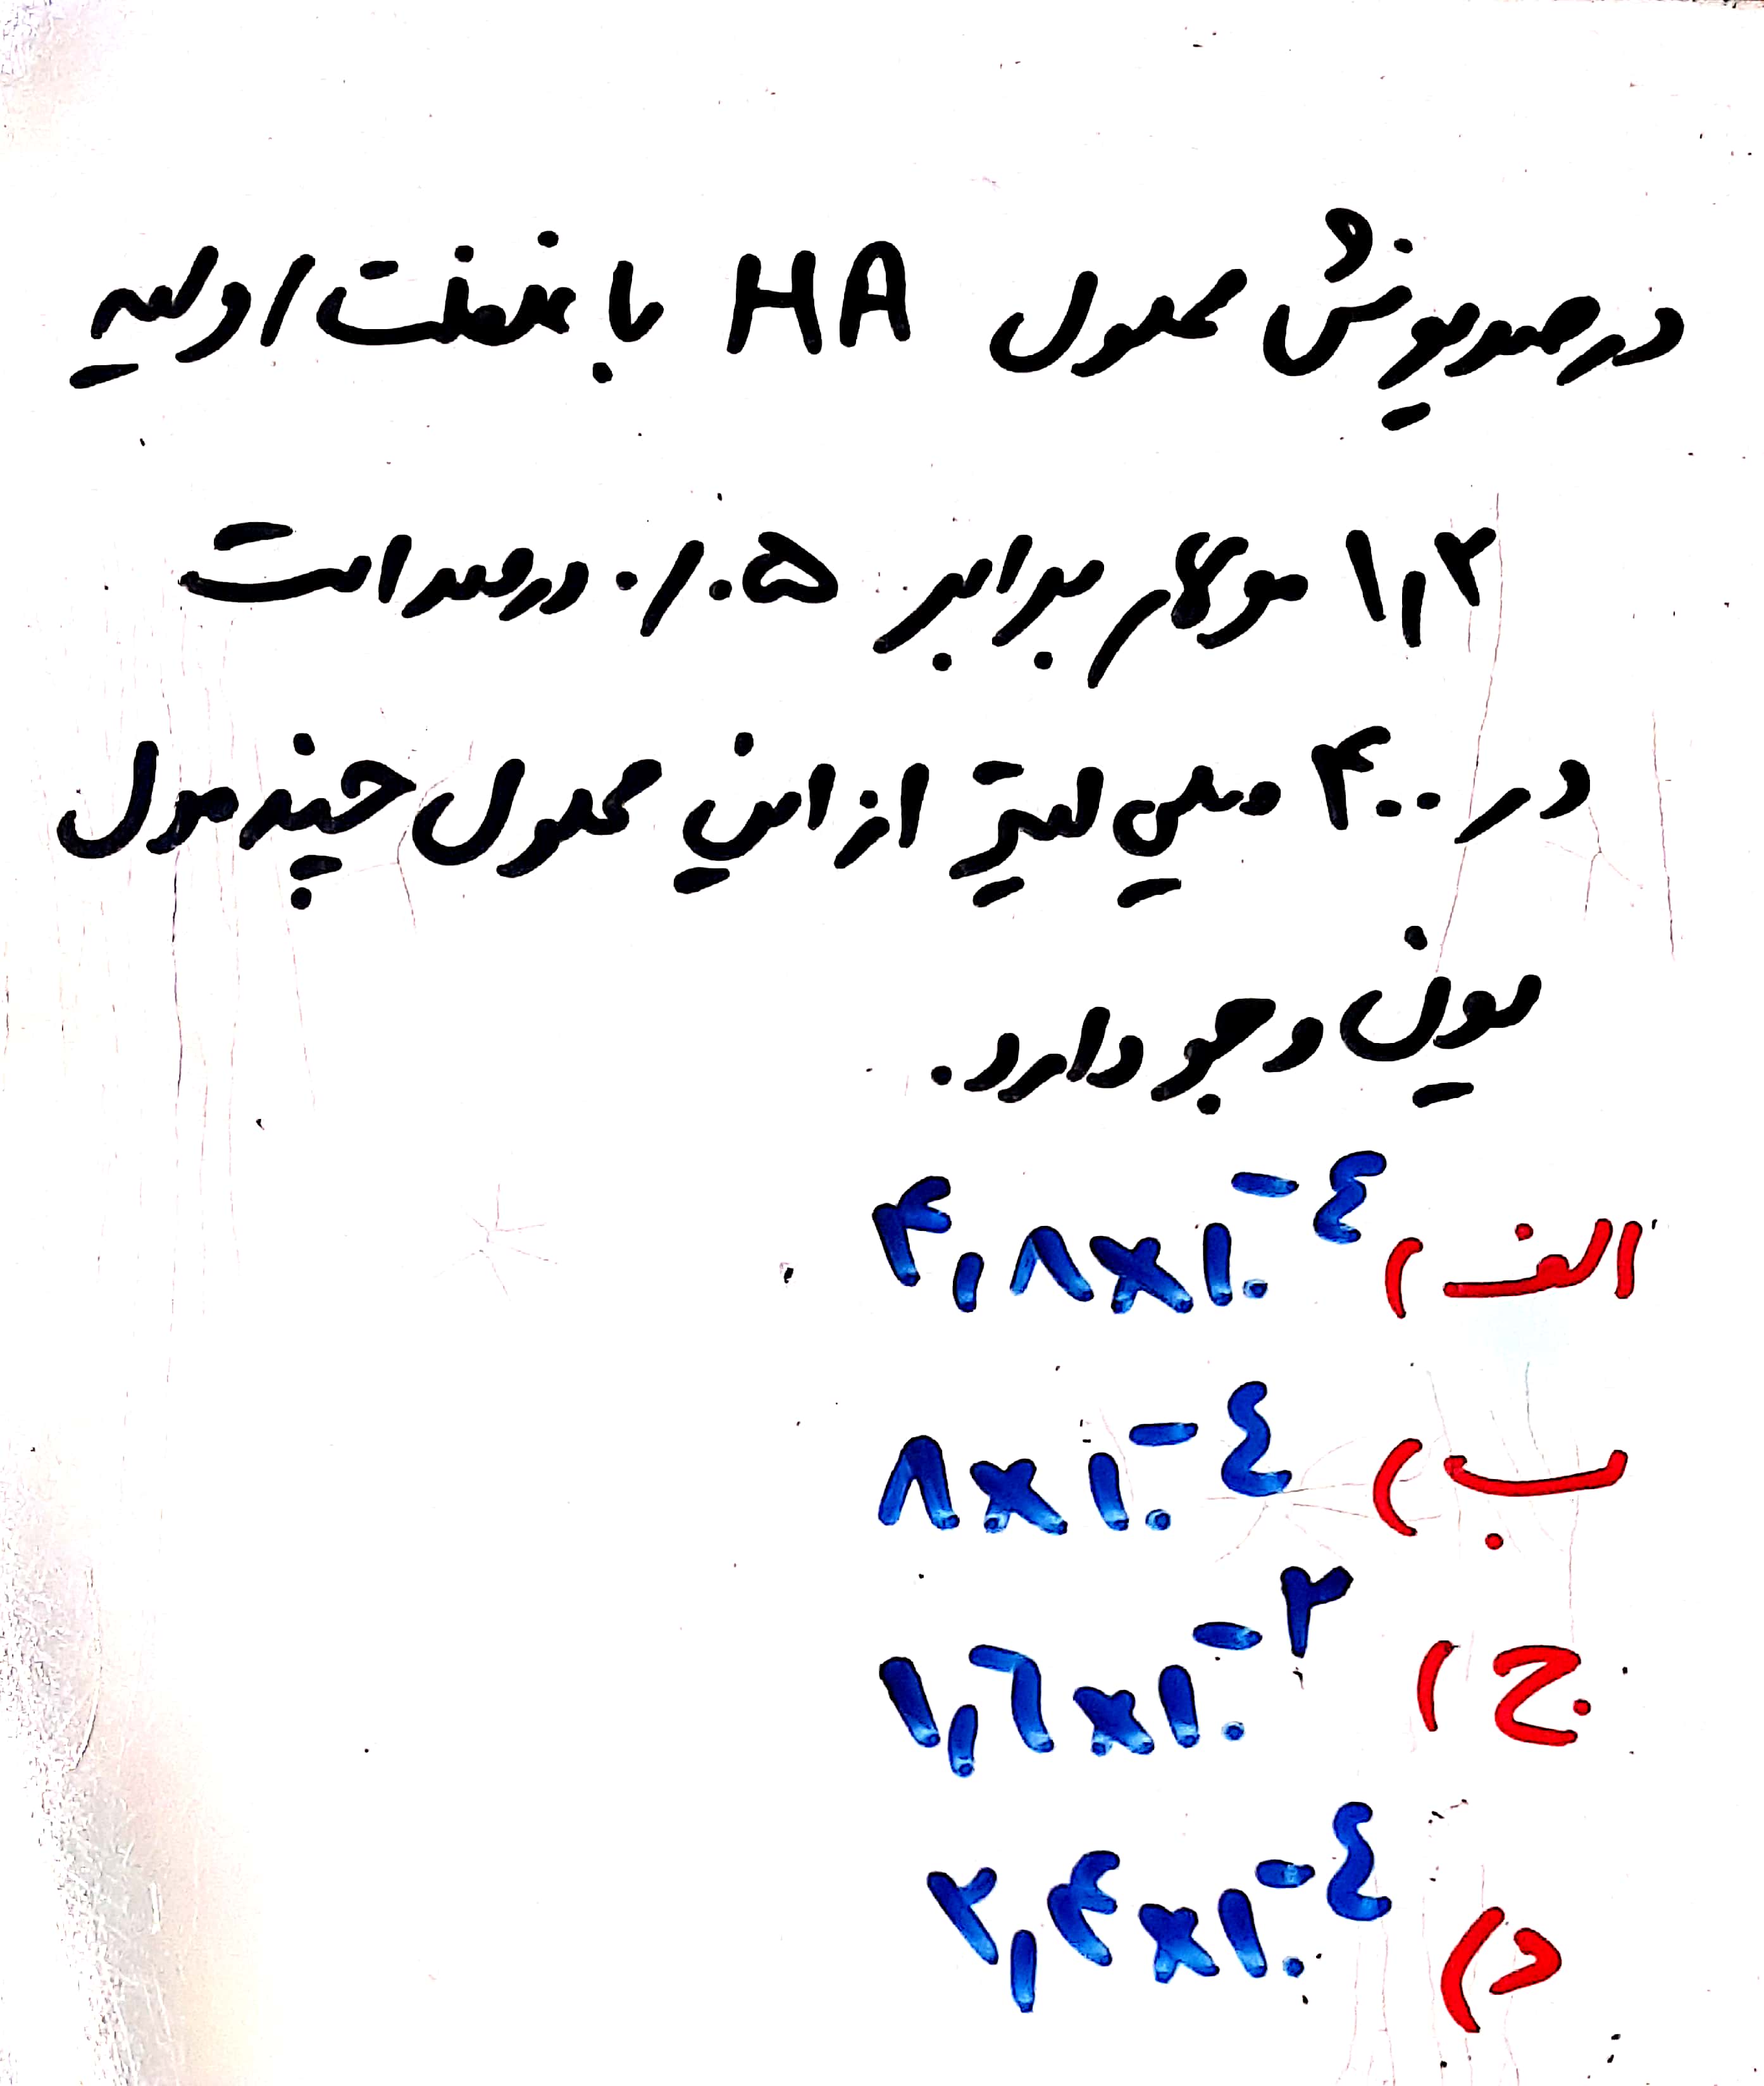 درصد یونش محلول HA با غلظت اولیه
۱,۲ مولار برابر ۰/۰۵ درصد است
در ۴۰۰ میلی لیتر از این محلول چند مول
یون وجود دارد.
الف) ۴,۸×۱۰⁻⁴
ب) ۸×۱۰⁻⁴
ج) ۱,۶×۱۰⁻²
د) ۲,۴×۱۰⁻⁴